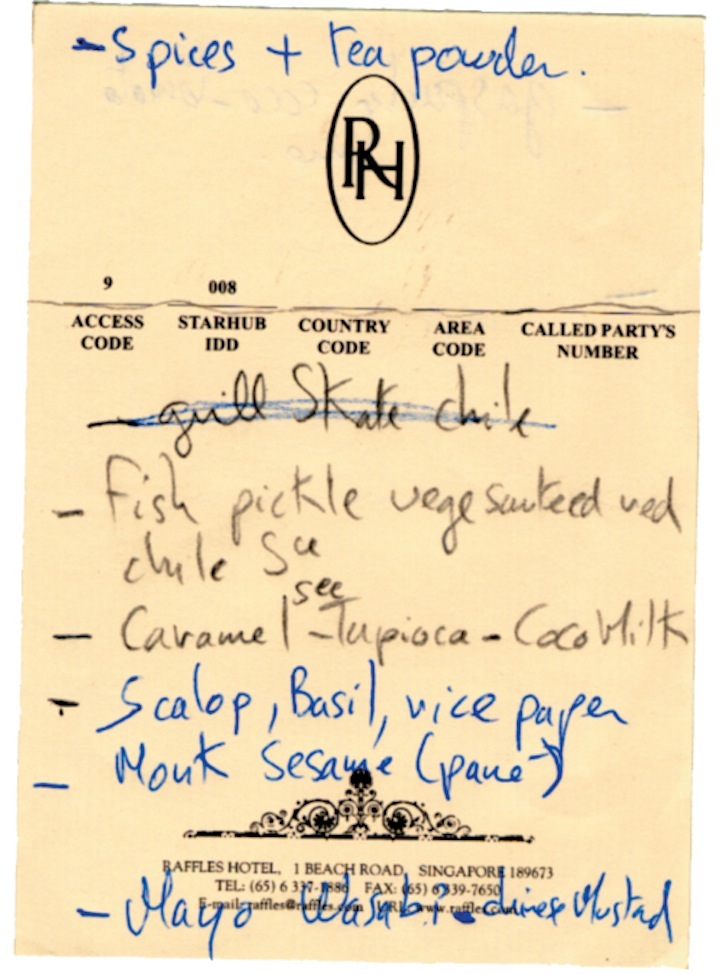 - Spices + tea powder.
RH
9 008
ACCESS CODE STARHUB IDD COUNTRY CODE AREA CODE CALLED PARTY'S NUMBER
- grill Skate chile
- Fish pickle vege sauteed red
chile
see
- Caramel - Tapioca - Coco Milk
- Scalop, Basil, rice paper
- Monk Sesame (pane)
RAFFLES HOTEL, 1 BEACH ROAD, SINGAPORE 189673
TEL: (65) 6 337-1886 FAX: (65) 6 339-7650
E-mail: raffles@raffles.com URL: www.raffles.com
- Mayo Wasabi? - chinese Mustad